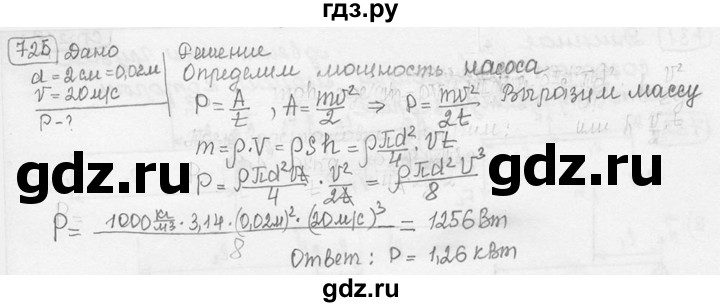 гдз.ру
725 Дано Решение
d = 2 см = 0,02м Определим мощность насоса
V = 20 м/с P = A/t , A = mv²/2 ⇒ P = mv²/2t Выразим массу
P - ?
m = ρ·V = ρSh = ρ πd²/4 · Vt
P = ρπd²Vt/4 · V²/2t = ρπd²V³/8
P = 1000 кг/м3 · 3,14 · (0,02м)² · (20 м/с)³ / 8 = 1256 Вт
Ответ : P = 1,26 кВт
gdz.ru gdz.ru gdz.ru
gdz.ru